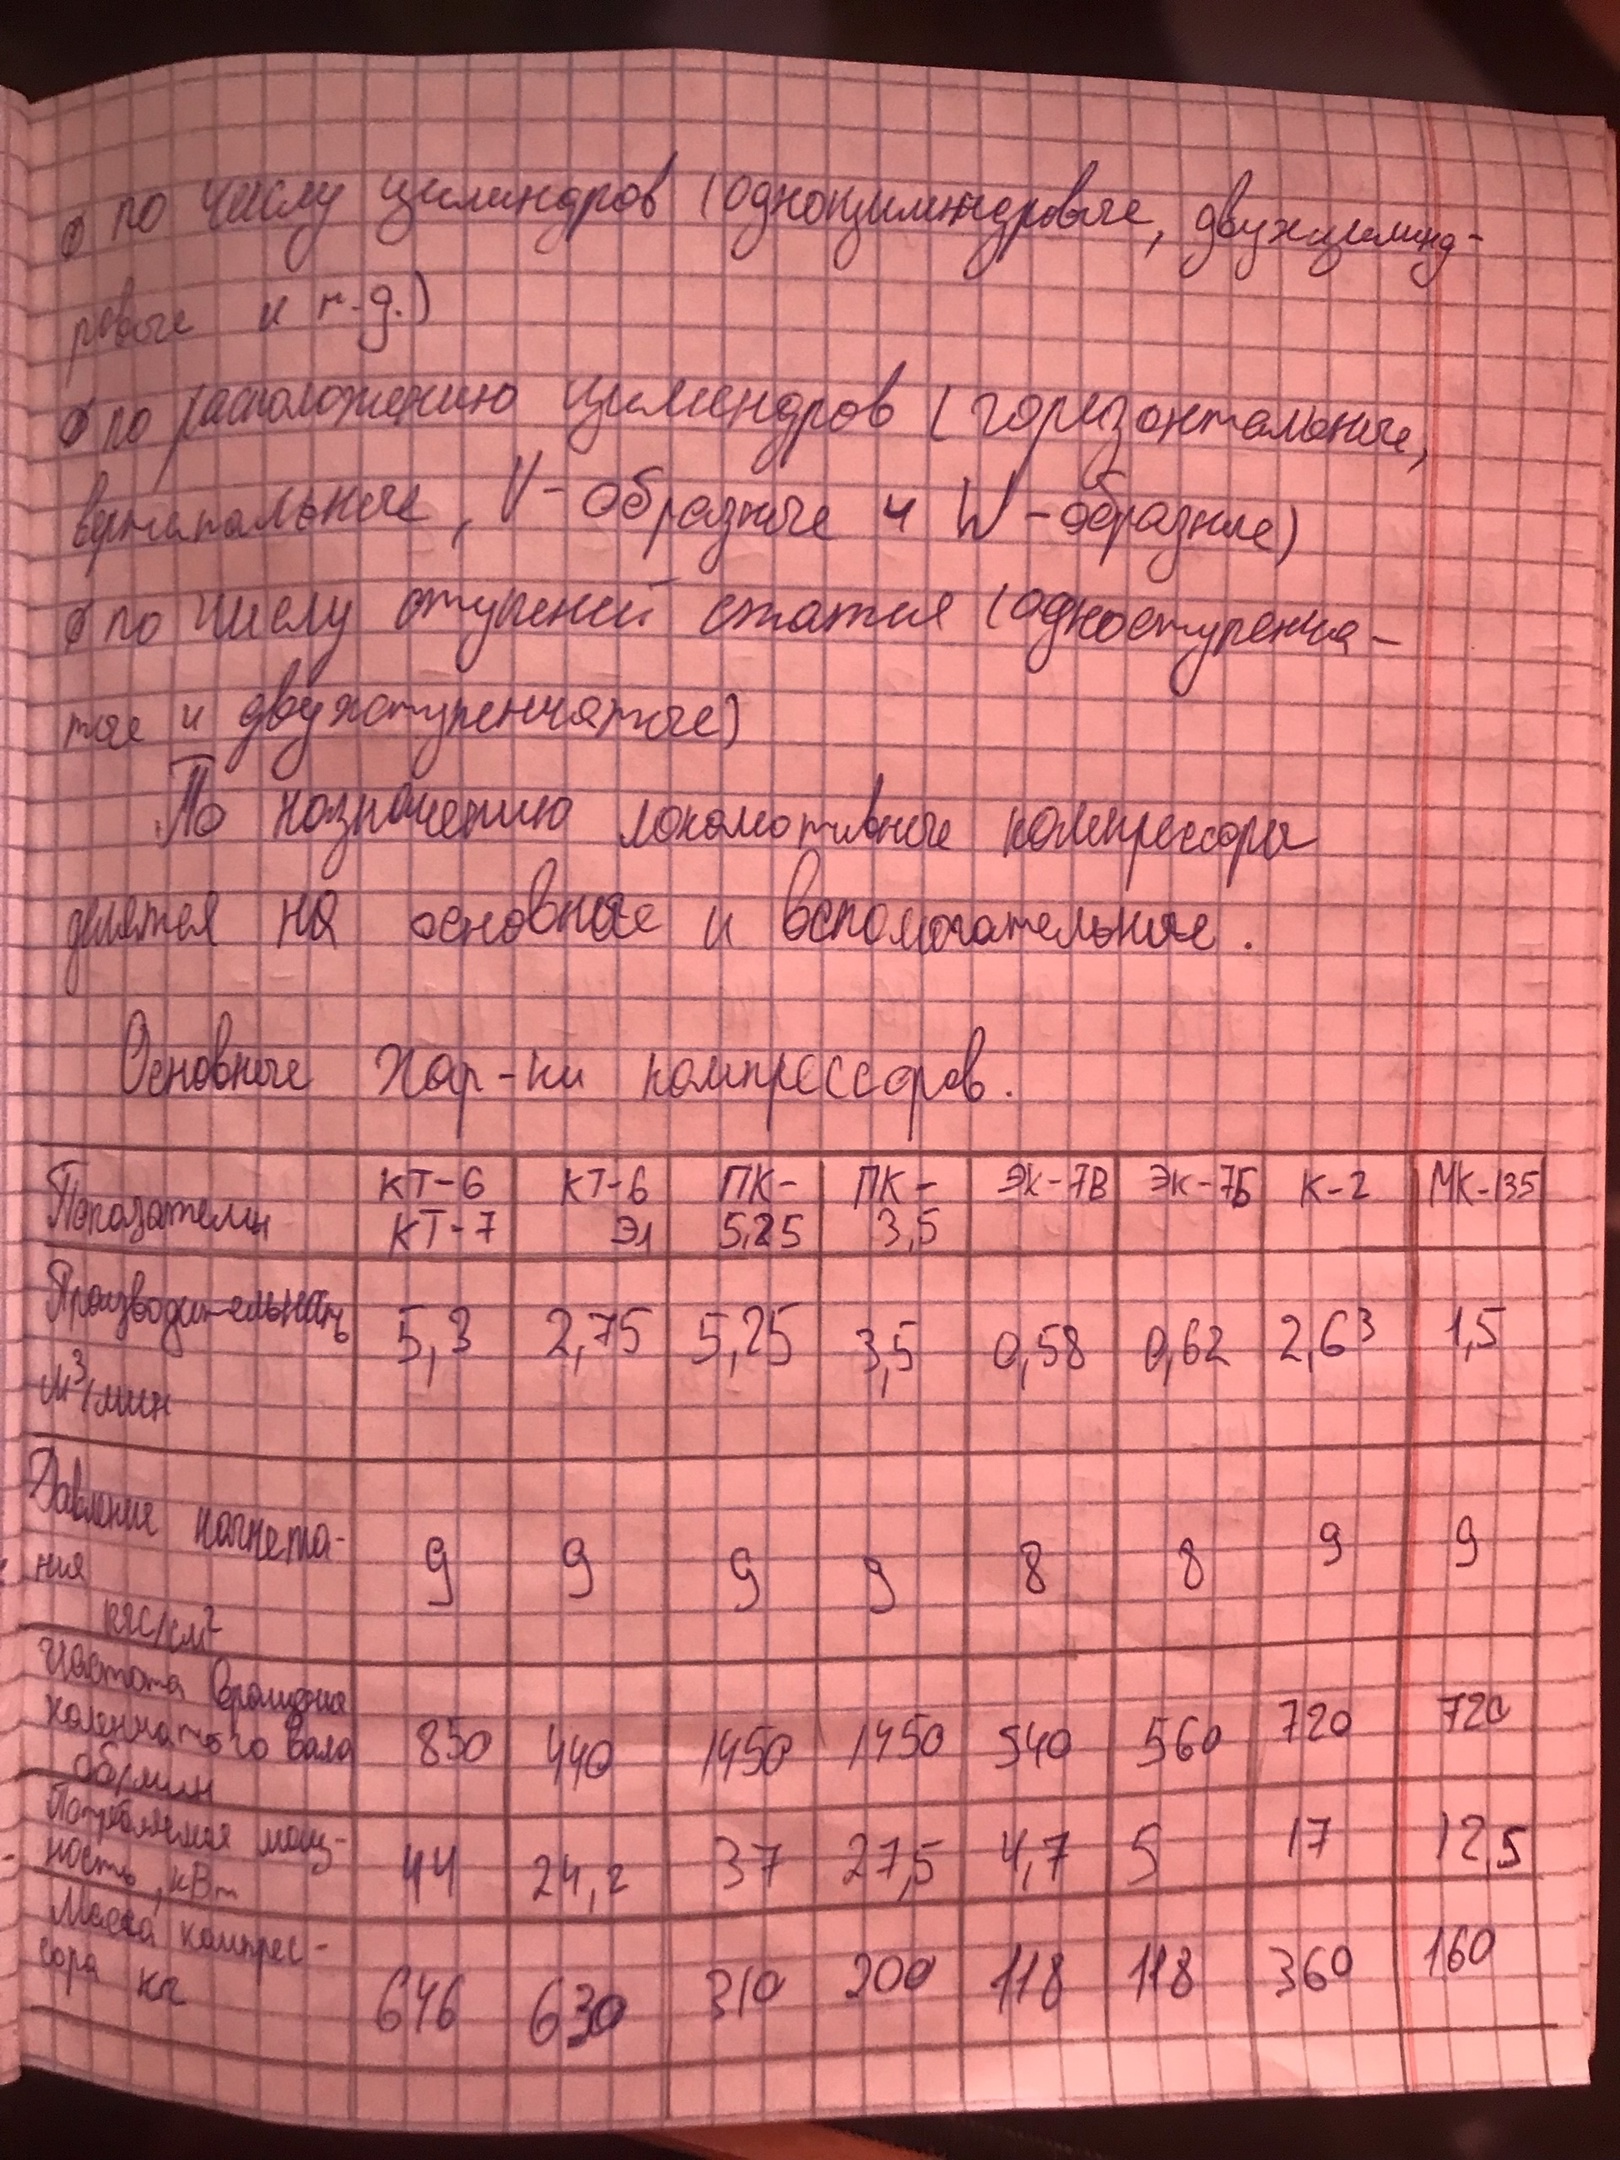 по числу цилиндров (одноцилиндровые, двухцилинд-
ровые и т.д.)
по расположению цилиндров (горизонтальные,
вертикальные, V-образные и W-образные)
по числу ступеней сжатия (одноступенча-
тые и двухступенчатые)
По назначению локомотивные компрессоры
делятся на основные и вспомогательные.
Основные хар-ки компрессоров.
Показатели КТ-6 КТ-7 КТ-6 Эл ПК-5,25 ПК-3,5 ЭК-7В ЭК-7Б К-2 МК-135
Производительность м³/мин 5,3 2,75 5,25 3,5 0,58 0,62 2,63 1,5
Давление нагнета-ния кгс/см² 9 9 9 9 8 8 9 9
Частота вращения коленчатого вала об/мин 850 440 1450 1450 540 560 720 720
Потребляемая мощ-ность, кВт 44 24,2 37 27,5 4,7 5 17 12,5
Масса компрес-сора кг 646 630 310 200 118 118 360 160